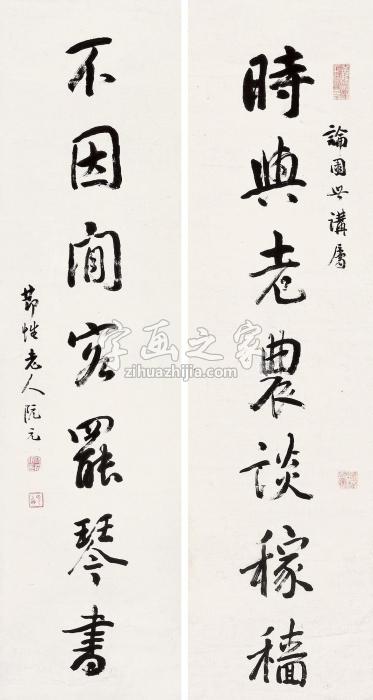 論園世講屬
時與老農談稼穡
不因閒客罷琴書
節性老人阮元
字画之家
zihuazhijia.com